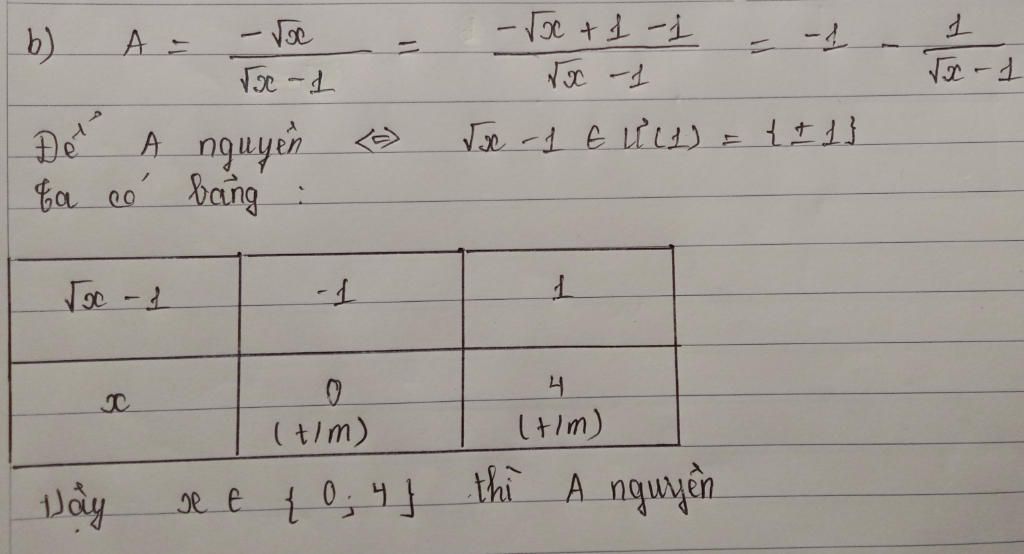 b) A = -√x / (√x - 1) = (-√x + 1 - 1) / (√x - 1) = -1 - 1 / (√x - 1)
Để A nguyên ⇔ √x - 1 ∈ Ư(1) = {±1}
Ta có bảng :
√x - 1 -1 1
x 0 4
(t/m) (t/m)
Vậy x ∈ {0; 4} thì A nguyên